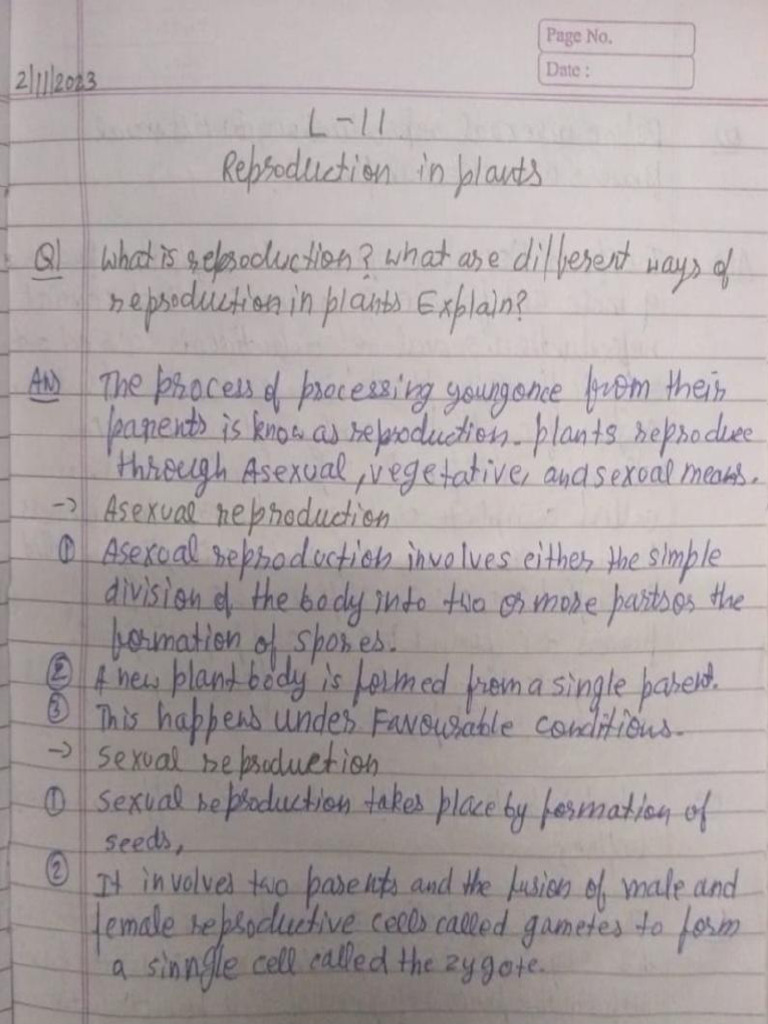 Page No.
Date :
2/11/2023
L-11
Reproduction in plants
Q1 What is reproduction? What are different ways of
reproduction in plants Explain?
Ans The process of processing youngonce from their
parents is know as reproduction. plants reproduce
through Asexual, vegetative, and sexual means.
-> Asexual reproduction
① Asexual reproduction involves either the simple
division of the body into two or more parts or the
formation of spores.
② A new plant body is formed from a single parent.
③ This happens under Favourable conditions.
-> Sexual reproduction
① Sexual reproduction takes place by formation of
seeds,
② It involves two parents and the fusion of male and
female reproductive cells called gametes to form
a sinngle cell called the zygote.